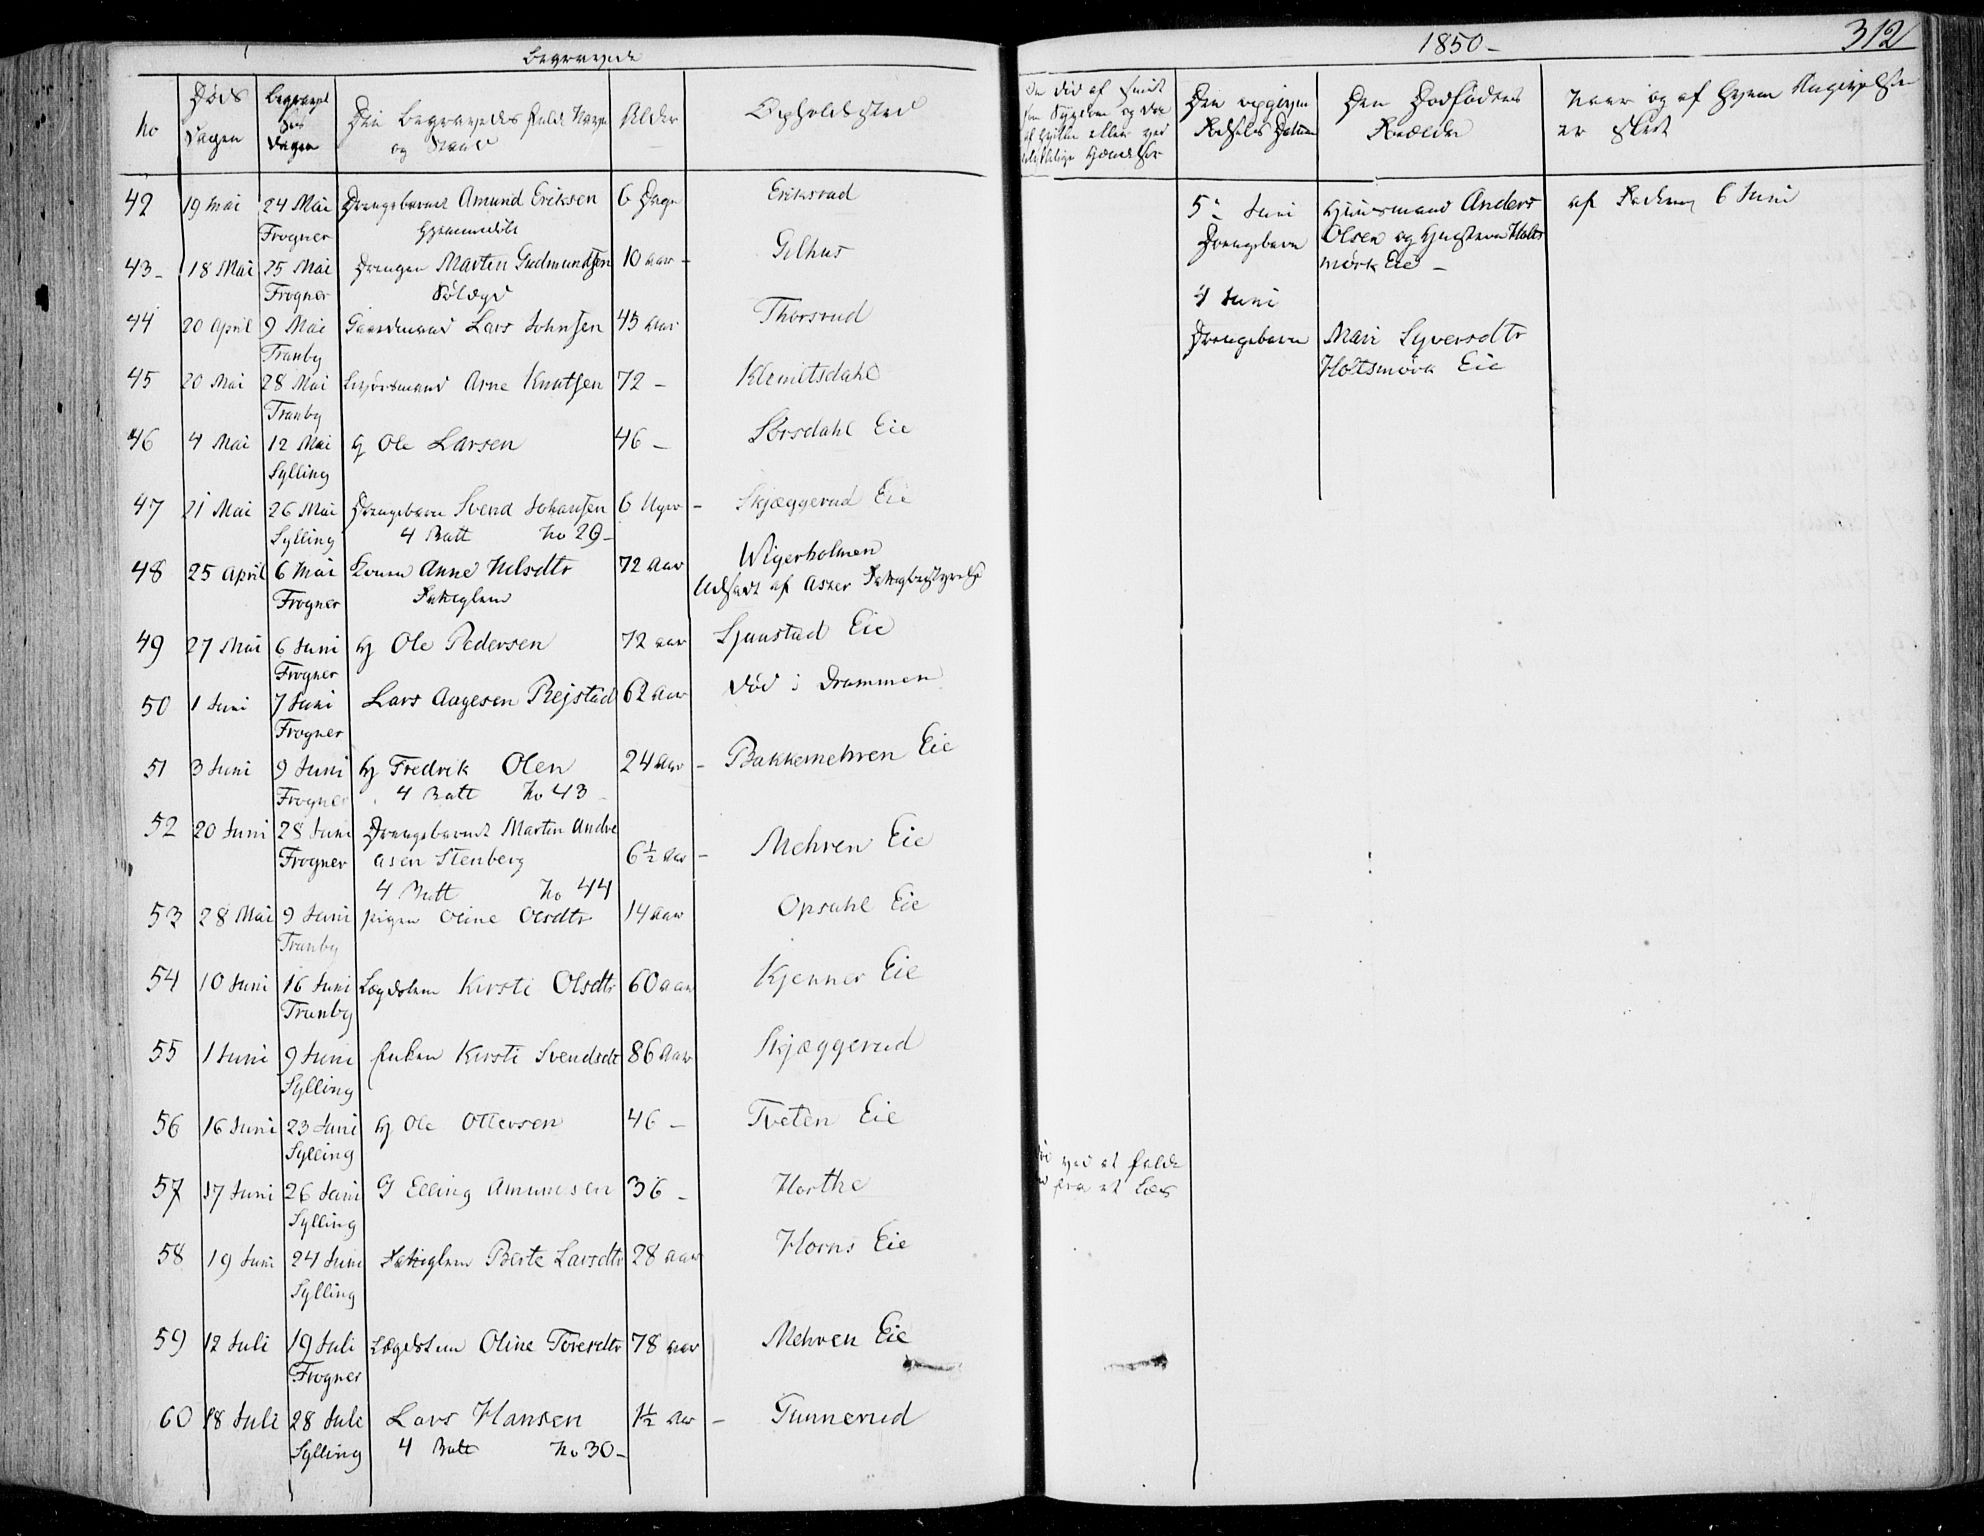 Begravede
No
Døds
Dagen
Begravel
ses
Dagen
Den Begravedes fulde Navn
og Stand
Alder
Opholdssted
42 19 Mai 24 Mai Drengebarnet Amund Eriksen 6 Dage Eriksrud
Frogner Hjemmedøbt
43- 18 Mai 25 Mai Drengen Martin Gudmundsen 10 aar - Gilhus
Frogner
44 20 April 9 Mai Gaardmand Lars Johnsen 43 aar Thorsrud
Tranby
45 20 Mai 28 Mai Arne Knutsen 72 - Klemitsdahl
Tranby
46 4 Mai 12 Mai Ole Larsen 46 - Sørsdahl Eie
Sylling
47 21 Mai 26 Mai Drengebarn Svend Johansen 6 Uger - Skjæggerud Eie
Sylling 4 Batt No 29-
48 25 April 6 Mai Konen Anne Nilsdtr 72 Aar Wigerholmen
Frogner Fattiglem Udsadt af Asker Fattigbestyrelse
49 27 Mai 6 Juni hj Ole Pedersen 72 aar Sjaastad Eie
Frogner
50 1 Juni 7 Juni Lars Aagesen Rejstad 62 Aar død i Drammen
Frogner
51 3 Juni 9 Juni hj Fredrik Olen 24 Aar - Bakkemehren Eie
Frogner 4 Batt No 43 -
52 20 Juni 28 Juni Drengebarnet Martin Andre
Frogner asen Stenberg 6½ Aar - Mehren Eie
4 Batt No 44
53 28 Mai 9 Juni pigen Oline Olsdtr 14 aar Opsahl Eie
Tranby
54 10 Juni 16 Juni Lægdslem Kirsti Olsdtr 60 aar Kjenner Eie
Tranby
55 1 Juni 9 Juni Enken Kirsti Svendsdt 86 Aar Skjæggerud
Sylling
56 16 Juni 23 Juni hj Ole Ottersen 46 - Tveten Eie
Sylling
57 17 Juni 26 Juni G Elling Amundsen 36 - Horthe
Sylling
58 19 Juni 24 Juni Fattiglem Berte Larsdtr 28 aar Horns Eie
Sylling
59 12 Juli 19 Juli Lægdslem Oline Toresdtr 78 aar Mehren Eie
Frogner
60 18 Juli 28 Juli Lars Hansen 1½ Aar - Gunnerud
Sylling 4 Batt No 30-
1850-
312
Den opgivne
Fødsels Datum
Den Dødfødtes
Forældre
Naar og af hvem Angivelsen
er skeet
5 Juni
Drengebarn
Huusmand Anders
Olsen og Holts
mørk Eie -
af Faderen 6 Juni
4 Juni
Drengebarn
Mari Syversdtr
Holtsmørk Eie
ved at falde
fra et Læs